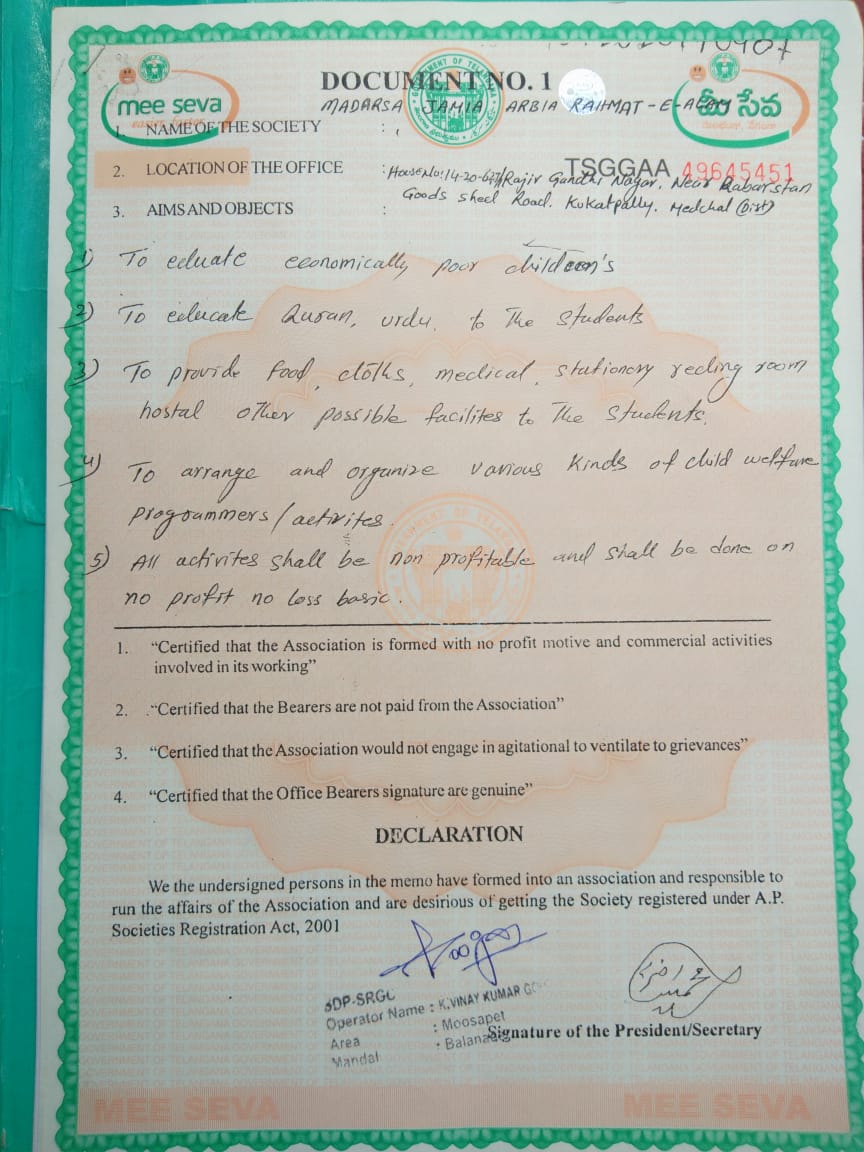 mee seva
easier, faster
DOCUMENT NO. 1
మీ సేవ
MADARSA JAMIA ARBIA RAHMAT-E-ALAM
1. NAME OF THE SOCIETY :
TSGGAA 49645451
2. LOCATION OF THE OFFICE : House No: 14-20-677/Rajiv Gandhi Nagar, Near Qabarstan
Goods shed Road. Kukatpally. Medchal (Dist)
3. AIMS AND OBJECTS :
1) To eduate economically poor children's
2) To educate Quran, urdu, to The students
3) To provide food, cloths, medical, stationory reding room
hostal other possible facilites to The students.
4) To arrange and organize various kinds of child welfare
programmers/activites.
5) All activites shall be non profitable and shall be done on
no profit no loss basic.
1. "Certified that the Association is formed with no profit motive and commercial activities
involved in its working"
2. "Certified that the Bearers are not paid from the Association"
3. "Certified that the Association would not engage in agitational to ventilate to grievances"
4. "Certified that the Office Bearers signature are genuine"
DECLARATION
We the undersigned persons in the memo have formed into an association and responsible to
run the affairs of the Association and are desirious of getting the Society registered under A.P.
Societies Registration Act, 2001
Operator Name : K.VINAY KUMAR
Area : Moosapet
Mandal :
Signature of the President/Secretary
MEE SEVA MEE SEVA